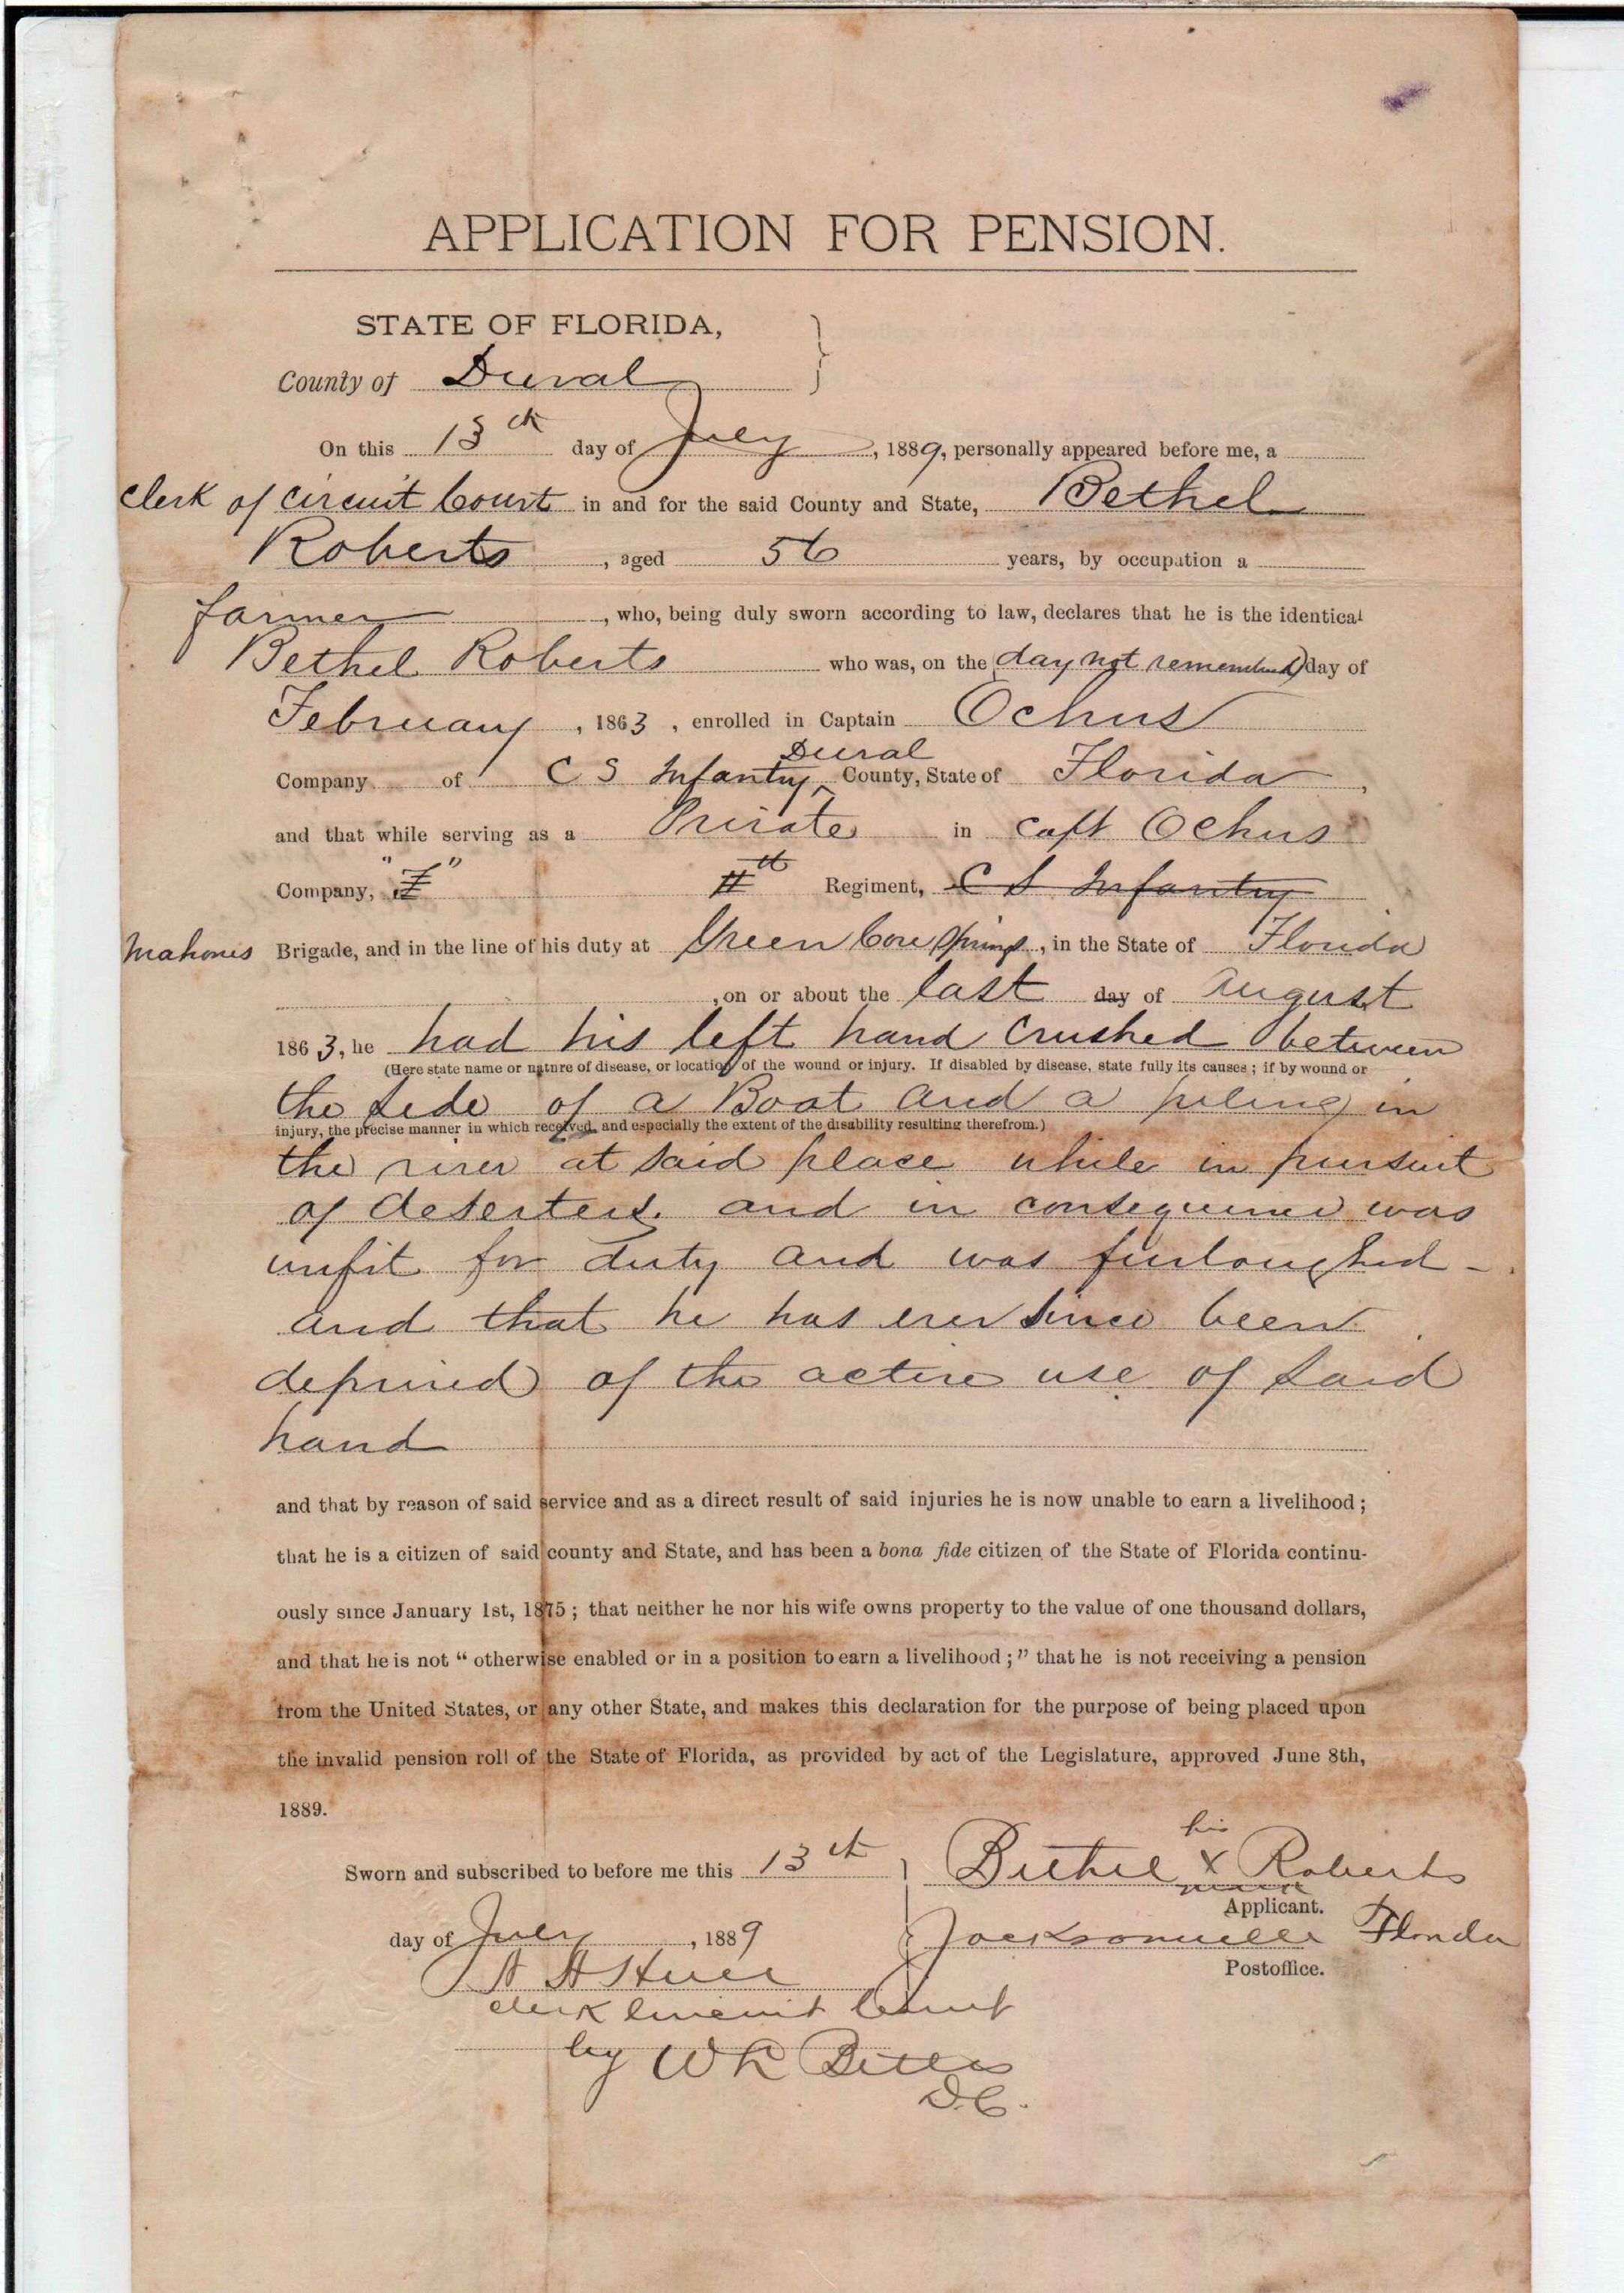 APPLICATION FOR PENSION.
STATE OF FLORIDA,
County of Duval
On this 13th day of July, 1889, personally appeared before me, a
Clerk of Circuit Court in and for the said County and State, Bethel
Roberts, aged 56 years, by occupation a
farmer, who, being duly sworn according to law, declares that he is the identical
Bethel Roberts who was, on the (day not remembered) day of
February, 1863, enrolled in Captain Ochus
Duval
Company of C S Infantry, County, State of Florida,
and that while serving as a Private in Capt Ochus
Company, Regiment, C S Infantry
Mahones Brigade, and in the line of his duty at Green Cove Springs, in the State of Florida
, on or about the last day of August
1863, he had his left hand crushed between
(Here state name or nature of disease, or location of the wound or injury. If disabled by disease, state fully its causes; if by wound or
the side of a Boat and a piling in
injury, the precise manner in which received, and especially the extent of the disability resulting therefrom.)
the river at said place while in pursuit
of deserters. and in consequence was
unfit for duty and was furloughed -
and that he has ever since been
deprived of the active use of said
hand
and that by reason of said service and as a direct result of said injuries he is now unable to earn a livelihood;
that he is a citizen of said county and State, and has been a bona fide citizen of the State of Florida continu-
ously since January 1st, 1875; that neither he nor his wife owns property to the value of one thousand dollars,
and that he is not "otherwise enabled or in a position to earn a livelihood;" that he is not receiving a pension
from the United States, or any other State, and makes this declaration for the purpose of being placed upon
the invalid pension roll of the State of Florida, as provided by act of the Legislature, approved June 8th,
1889.
his
Sworn and subscribed to before me this 13th Bethel X Roberts
mark
Applicant.
day of July, 1889 Jacksonville Florida
Postoffice.
Clerk Circuit Court
by W R
D.C.